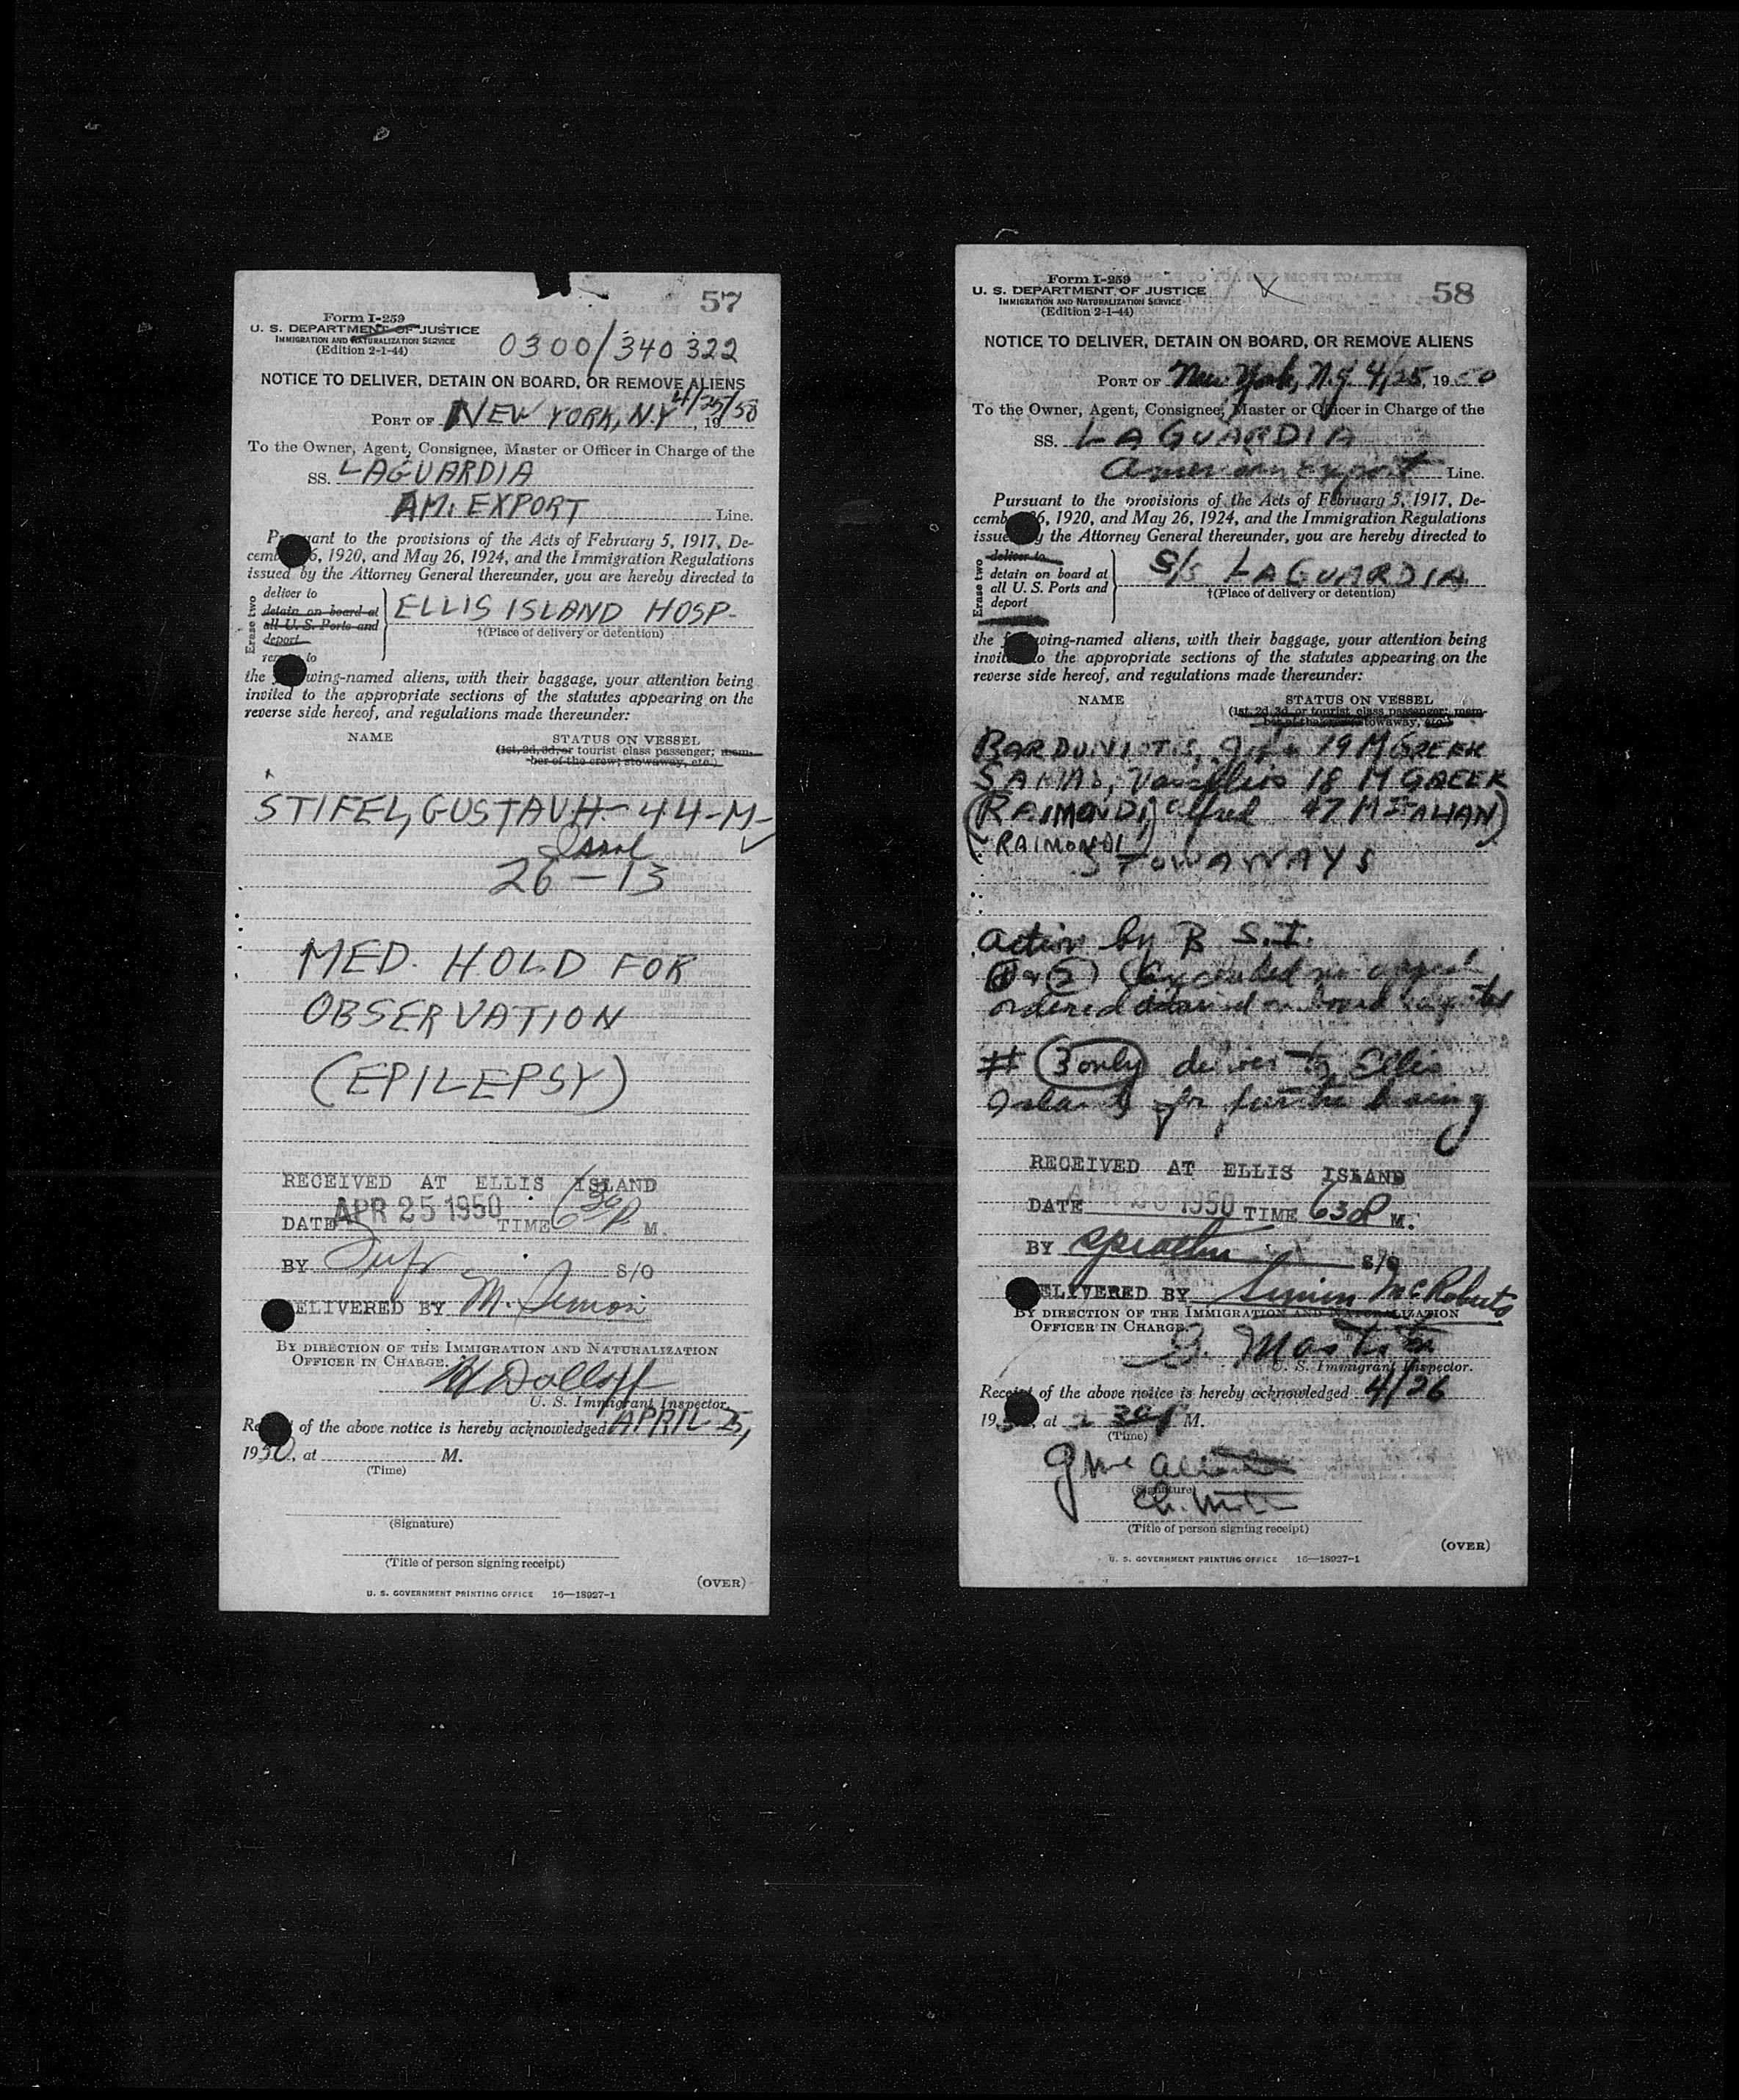 57
Form I-259
U. S. DEPARTMENT OF JUSTICE
IMMIGRATION AND NATURALIZATION SERVICE
(Edition 2-1-44)
0300/340322
NOTICE TO DELIVER, DETAIN ON BOARD, OR REMOVE ALIENS
PORT OF NEW YORK, N.Y 4/25/50, 19
To the Owner, Agent, Consignee, Master or Officer in Charge of the
SS. LAGUARDIA
AM. EXPORT Line.
Pursuant to the provisions of the Acts of February 5, 1917, De-
cember 26, 1920, and May 26, 1924, and the Immigration Regulations
issued by the Attorney General thereunder, you are hereby directed to
Erase two
deliver to
detain on board at
all U. S. Ports and
deport
remove to
ELLIS ISLAND HOSP-
†(Place of delivery or detention)
the following-named aliens, with their baggage, your attention being
invited to the appropriate sections of the statutes appearing on the
reverse side hereof, and regulations made thereunder:
NAME STATUS ON VESSEL
(1st, 2d, 3d, or tourist class passenger; mem-
ber of the crew; stowaway, etc.)
STIFEL, GUSTAV H- 44-M-
Israel
26-13
MED. HOLD FOR
OBSERVATION
(EPILEPSY)
RECEIVED AT ELLIS ISLAND
DATE APR 25 1950 TIME 630 P. M.
BY S/O
DELIVERED BY M. Simon
BY DIRECTION OF THE IMMIGRATION AND NATURALIZATION
OFFICER IN CHARGE.
H Dolloff
U. S. Immigrant Inspector.
Receipt of the above notice is hereby acknowledged APRIL 25,
1950, at M.
(Time)
(Signature)
(Title of person signing receipt)
(OVER)
U. S. GOVERNMENT PRINTING OFFICE 16—18927-1
58
Form I-259
U. S. DEPARTMENT OF JUSTICE
IMMIGRATION AND NATURALIZATION SERVICE
(Edition 2-1-44)
NOTICE TO DELIVER, DETAIN ON BOARD, OR REMOVE ALIENS
PORT OF New York, N.Y 4/25, 1950
To the Owner, Agent, Consignee, Master or Officer in Charge of the
SS. LA GUARDIA
American Export Line.
Pursuant to the provisions of the Acts of February 5, 1917, De-
cember 26, 1920, and May 26, 1924, and the Immigration Regulations
issued by the Attorney General thereunder, you are hereby directed to
Erase two
deliver to
detain on board at
all U. S. Ports and
deport
S/S LAGUARDIA
†(Place of delivery or detention)
the following-named aliens, with their baggage, your attention being
invited to the appropriate sections of the statutes appearing on the
reverse side hereof, and regulations made thereunder:
NAME STATUS ON VESSEL
(1st, 2d, 3d, or tourist class passenger; mem-
ber of the crew; stowaway, etc.)
BARDUNIOTIS, 19 M GREEK
Vassilios 18 M GREEK
(RAIMONDI, Alfred 47 M ITALIAN)
RAIMONDI
STOWAWAYS
Action by B S.I.
1 & 2 Excluded no appeal
ordered detained on board
# 3 only deliver to Ellis
Island for further hearing
RECEIVED AT ELLIS ISLAND
DATE APR 26 1950 TIME 630 P M.
BY S/O
DELIVERED BY Simon McRoberts
BY DIRECTION OF THE IMMIGRATION AND NATURALIZATION
OFFICER IN CHARGE.
U. S. Immigrant Inspector.
Receipt of the above notice is hereby acknowledged 4/26
1950, at 2 30 P M.
(Time)
(Signature)
(Title of person signing receipt)
(OVER)
U. S. GOVERNMENT PRINTING OFFICE 16—18927-1